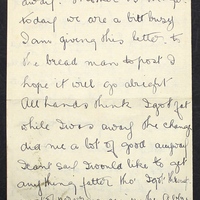 away.
today we are a bit busy
I am giving this letter to
the bread man to post I
hope it will go alright
All hands think I got fat
while I was away the change
did me a lot of good anyway
I can't say I would like to get
anything fatter tho I got